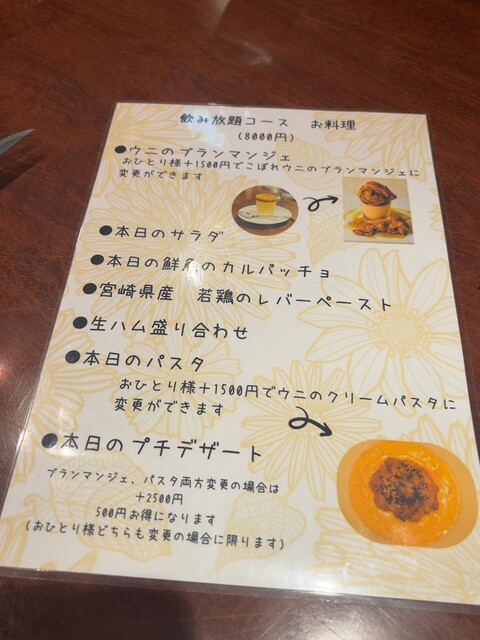 飲み放題コース　お料理
(8000円)
●ウニのブランマンジェ
おひとり様＋1500円でこぼれウニのブランマンジェに
変更ができます
●本日のサラダ
●本日の鮮魚のカルパッチョ
●宮崎県産　若鶏のレバーペースト
●生ハム盛り合わせ
●本日のパスタ
おひとり様＋1500円でウニのクリームパスタに
変更ができます
●本日のプチデザート
ブランマンジェ、パスタ両方変更の場合は
＋2500円
500円お得になります
(おひとり様どちらも変更の場合に限ります)